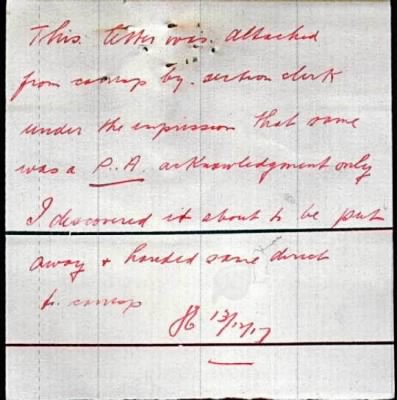 This letter was attached
from corresp by section clerk
under the impression that same
was a P.A. acknowledgment only
I discovered it about to be put
away & handed same direct
to corresp
13/12/17